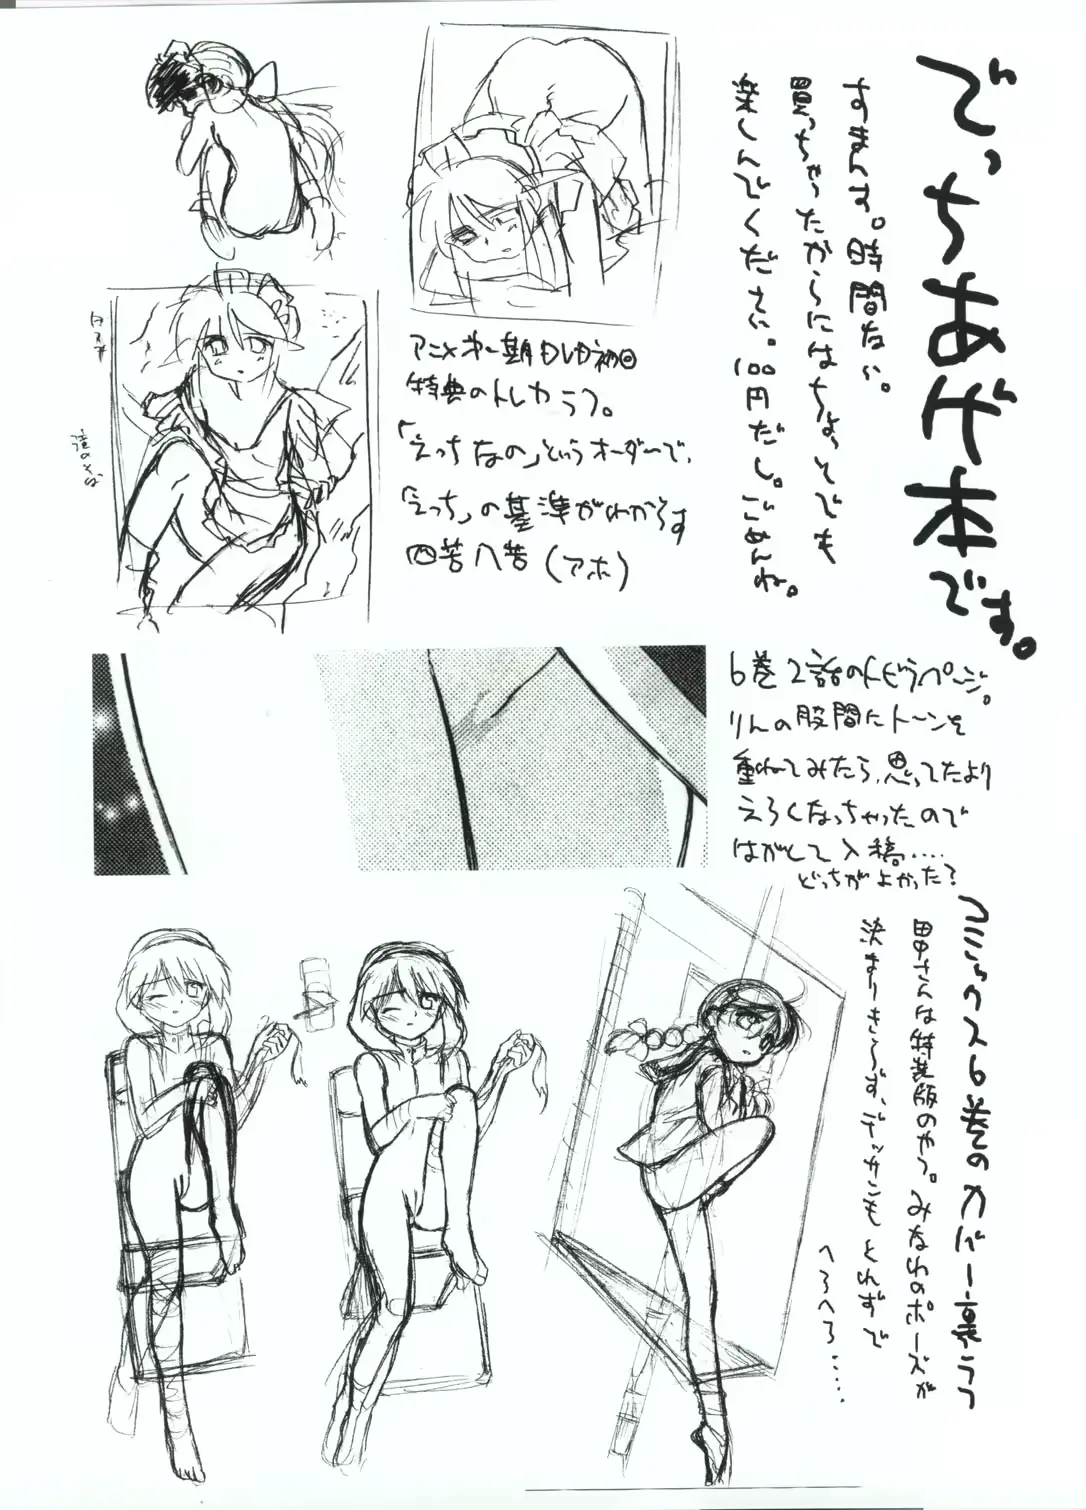 でっちあげ本です。
すまんす。時間ない。
買っちゃったからにはちょっとでも
楽しんでください。100円だし。ごめんね。
アニメ第一期もしか初回
特典のトレカラフ。
「えっちなの」というオーダーで、
「えっち」の基準がわからす
四苦八苦(アホ)
6巻2話のトビラページ。
りんの股間にトーンを
重ねてみたら、思ってたより
えろくなっちゃったので
はがして入稿....
どっちがよかった?
コミックス6巻のカバー裏ラフ
田中さんは特装版のやつ。みなわのポーズが
決まりきらず、デッサンもとれずで
へろへろ.....